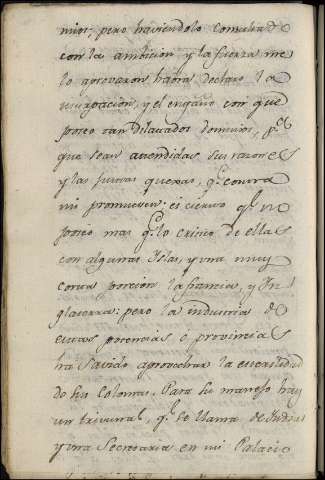 mios; pero haviendolo consultado
con la ambicion y la fuerza me
lo aprovaron hasta declaro la
usurpacion, y el engaño con que
poseo tan dilatados dominios, pa
que sean atendidas sus razones
y las justas quexas, qe contra
mi promueven: es cierto qe no
poseo mas qe lo crisco de ella
con algunas Islas, y una muy
corta porcion la francia, y In
glaterra: pero la industria de
estas potencias ó provincias
ha savido aprovechar la esterilidad
de sus Colonias. Para su manejo hay
un tribunal, qe se llama de Indias
y una Secretaria en mi Palacio